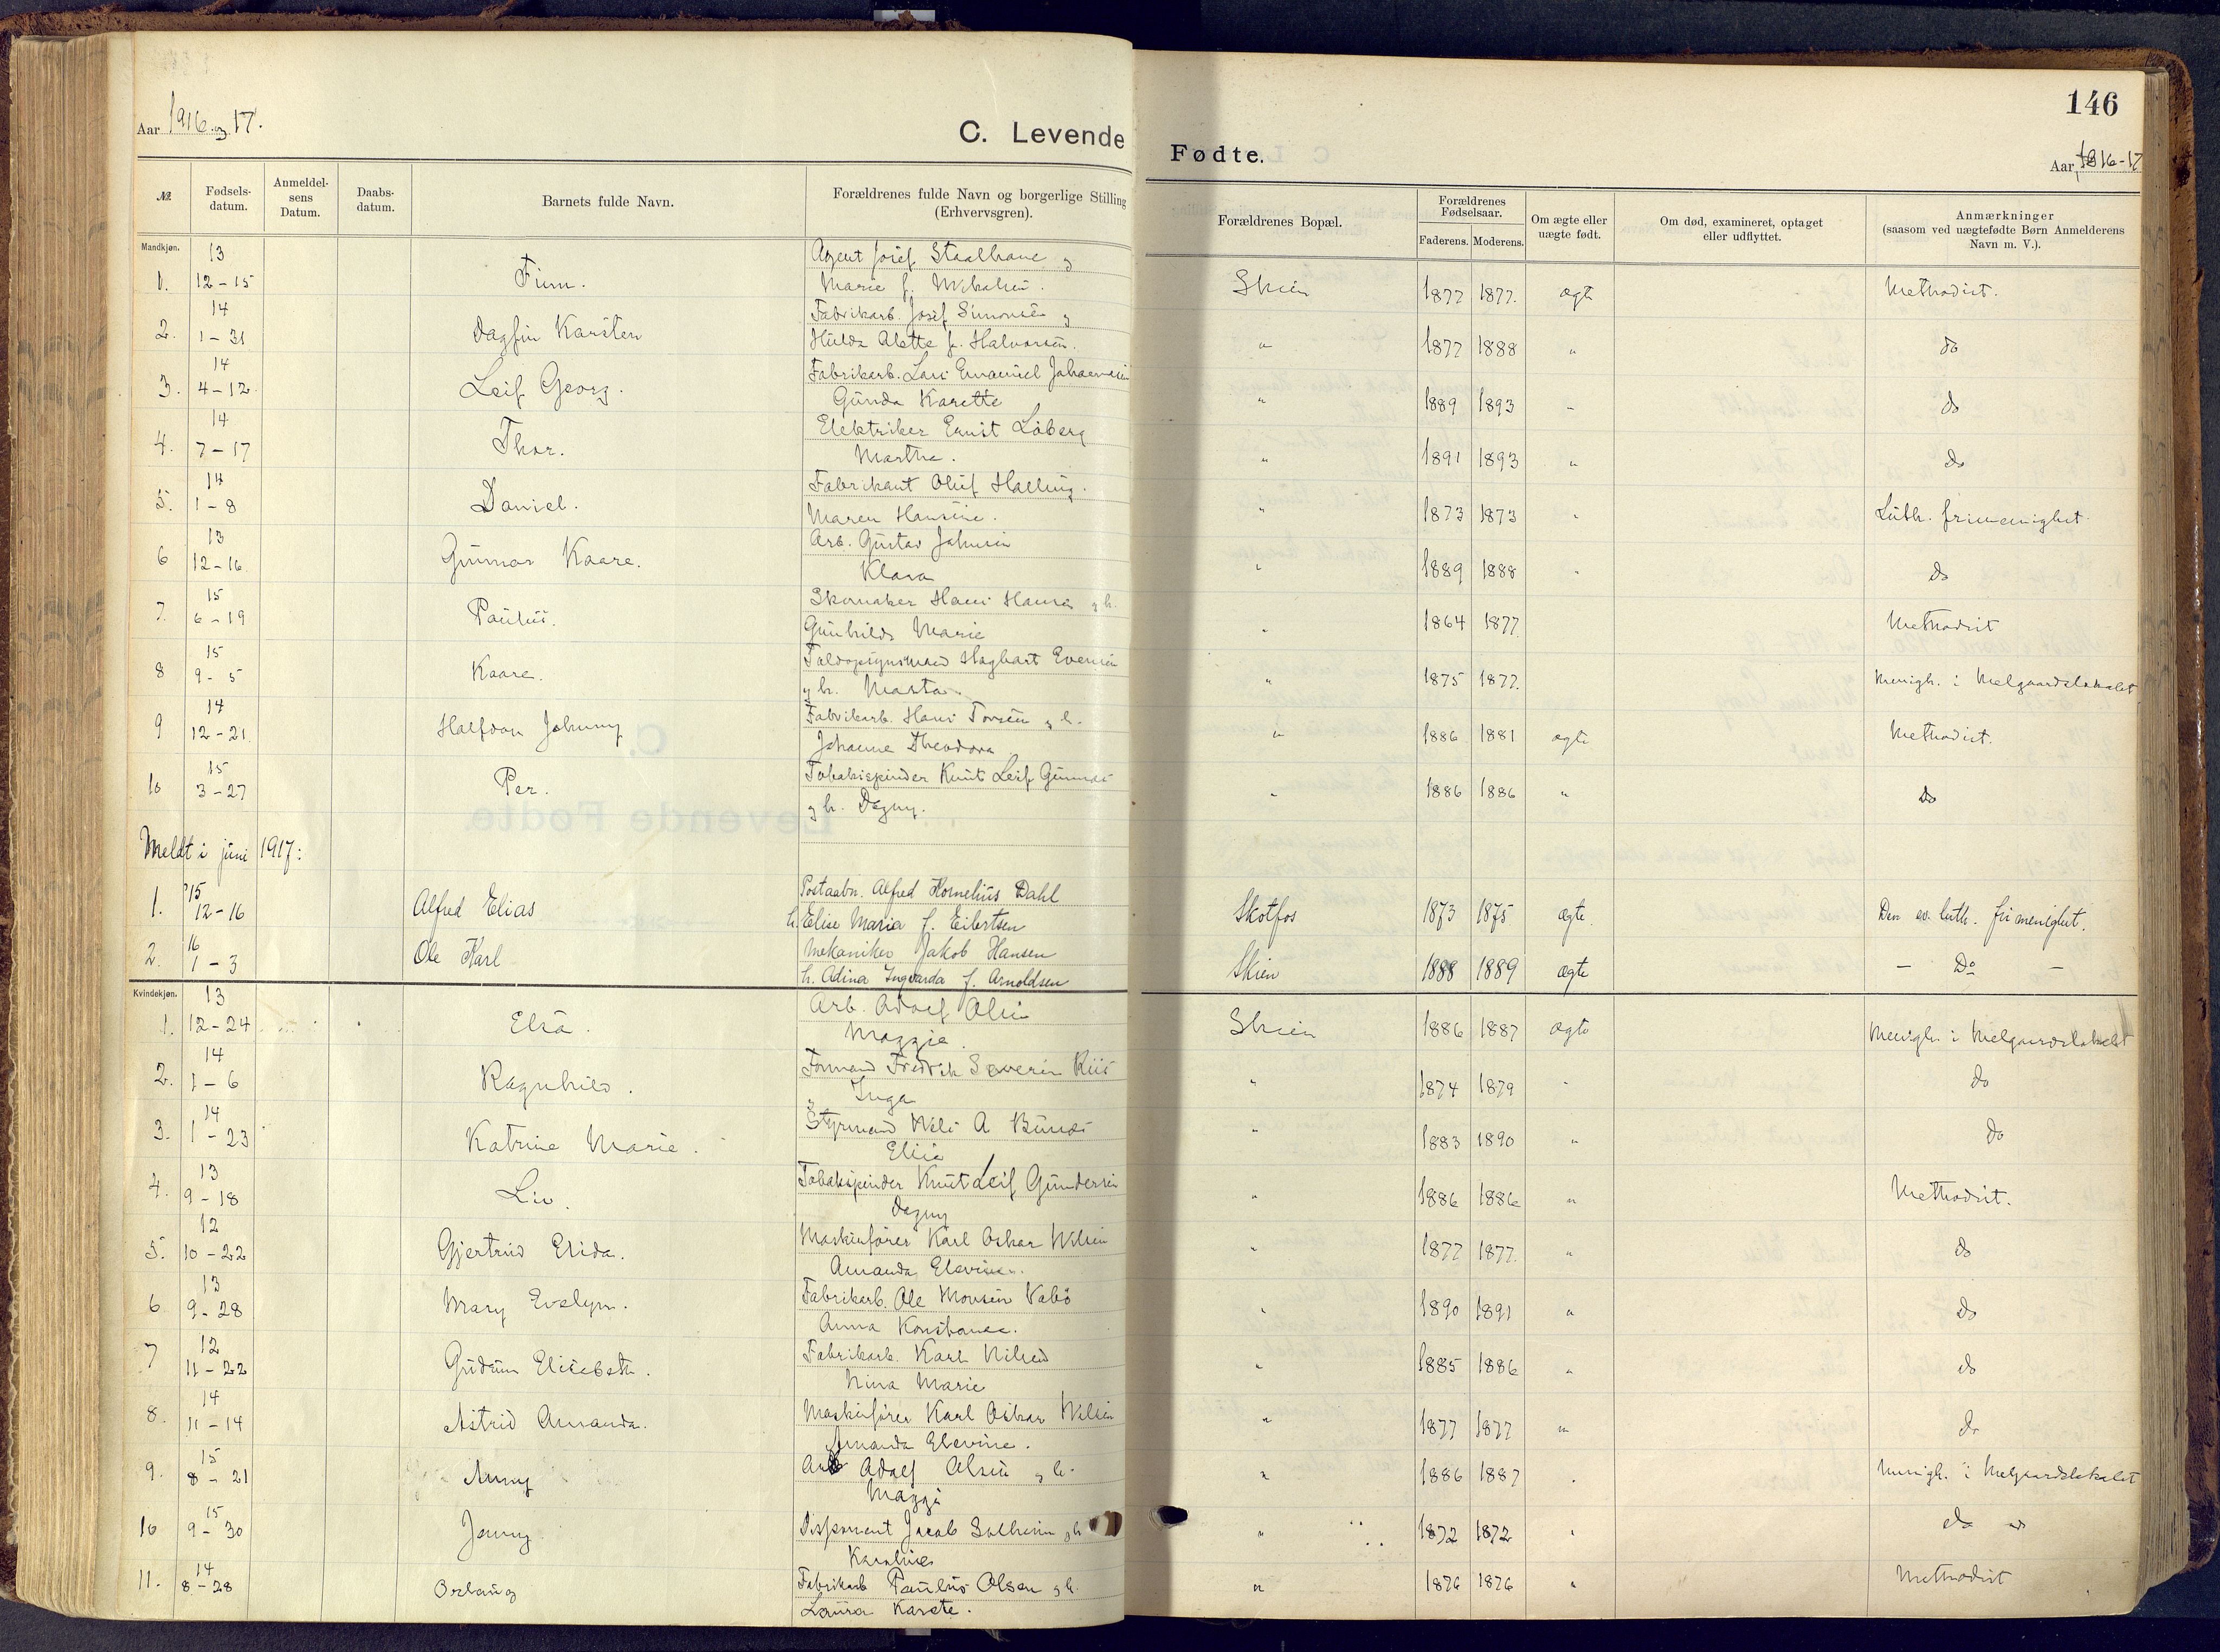 146
Aar 1916 og 17.
C. Levende Fødte.
Aar 1916-17
№ Fødsels-datum. Anmeldel-sens Datum. Daabs-datum. Barnets fulde Navn. Forældrenes fulde Navn og borgerlige Stilling (Erhvervsgren). Forældrenes Bopæl. Forældrenes Fødselsaar. Faderens. Moderens. Om ægte eller uægte født. Om død, examineret, optaget eller udflyttet. Anmærkninger (saasom ved uægtefødte Børn Anmelderens Navn m. V.).
Mandkjøn.
13 Agent Josef Staalhane og
1. 12-15 Finn. Marie f. Mikalsen. Skien 1877 1877. ægte Methodist.
14 Fabrikarb. Josef Simonsen og
2. 1-31 Dagfin Karsten Hulda Alette f. Halvorsen. " 1877 1888 " do
14 Fabrikarb. Lars Emanuel Johannesen
3. 4-12. Leif Georg. Gunda Karette " 1889 1893 - do
14 Elektriker Ernst Løberg
4. 7-17 Thor. Martha. " 1891 1893 " do
14 Fabrikant Oluf Halling.
5. 1-8 Daniel. Maren Hansine. " 1873 1873 " Luth. frimenighet
13 Arb. Gustav Johnsen
6 12-16. Gunnar Kaare. Klara " 1889 1888 " do
15 Skomaker Hans Hansen og h.
7. 6-19 Paulus. Gunhilda Marie " 1864 1877 Methodist
15 Toldopsynsmand Hagbart Evensen
8 9-5 Kaare. og h. Marta. " 1875 1877. Menigh. i Melgaardslokalet
14 Fabrikarb. Hans Torsen og h.
9 12-21. Halfdan Johnny Johanne Theodora " 1886 1881 ægte Methodist.
15 Tobakspinder Knut Leif
10 3-27 Per. og h. Dagny. " 1886 1886 " do
Meldt i juni 1917:
'15 Postaabn. Alfred Kornelius Dahl
1. 12-16 Alfred Elias h. Elise Maria f. Eilertsen Skotfos 1873 1875 ægte Den ev. luth. frimenighet.
16 Mekaniker Jakob Hansen
2. 1-3 Ole Karl h. Adina Ingvarda f. Arnoldsen Skien 1888 1889 ægte - Do -
Kvindekjøn.
13 Arb. Adolf Olsen
1. 12-24 Elsa. Maggie. Skien 1886 1887 ægte Menigh. i Melgaardslokalet
14 Formand Fredrik Severin Riis
2. 1-6 Ragnhild. og Inga " 1874 1879 " do
14 Styrmand Nils A.
3. 1-23 Katrine Marie. Elise " 1883 1890 " do
13 Tobakspinder Knut Leif Gundersen
4. 9-18 Liv. Dagny " 1886 1886 " Methodist.
12 Maskinfører Karl Oskar Nilsen
5. 10-22 Gjertrud Elida. Amanda Elevine. " 1877 1877. " do
13 Fabrikarb. Ole Monsen Nabø
6. 9-28 Mary Evelyn. Anna Konstance. " 1890 1891 " do
12 Fabrikarb. Karl Nilsen
7 11-22 Gudrun Elisebeth. Nina Marie " 1885 1886 " do
14 Maskinfører Karl Oskar Nilsen
8. 11-14 Astrid Amanda. Amanda Elevine. " 1877 1877 " do
15 Arb Adolf Olsen og h.
9. 8-21 Anny Maggi " 1886 1887 " Menigh. i Melgaardslokalet
15 Disponent Jacob Solheim og h
10 9-30 Jenny. " 1872 1872 " do
14 Fabrikarb Paulus Olsen og h.
11. 8-28 Laura Karete. " 1876 1876 " Methodist